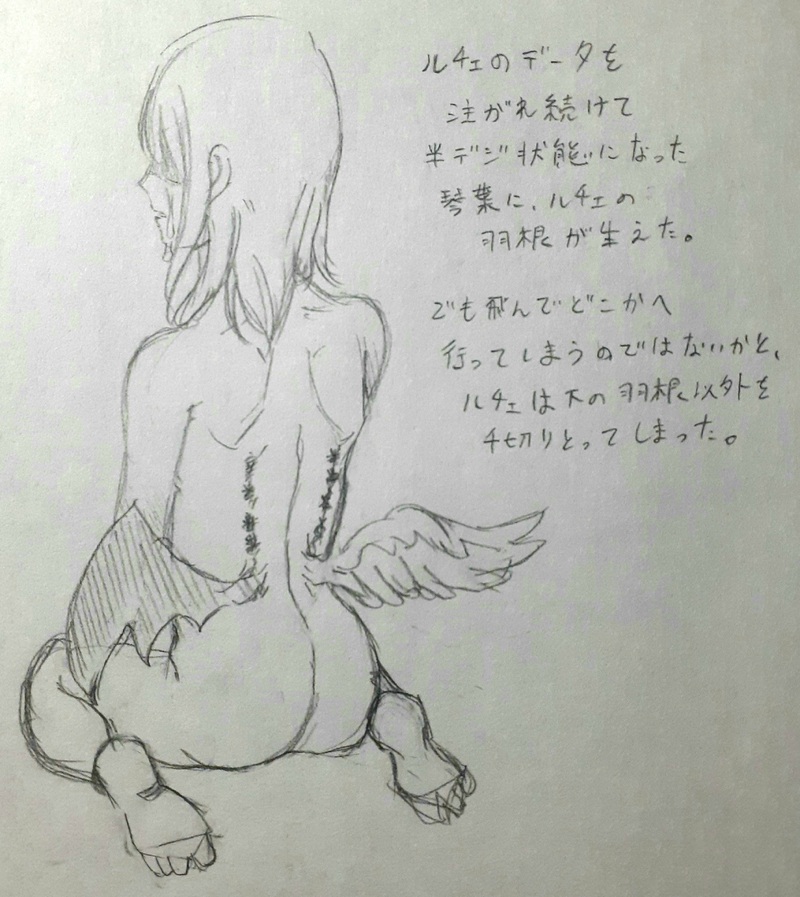 ルチェのデータを
注がれ続けて
半デジ状態になった
琴葉に、ルチェの
羽根が生えた。
でも飛んでどこかへ
行ってしまうのではないかと、
ルチェは下の羽根以外を
千切りとってしまった。